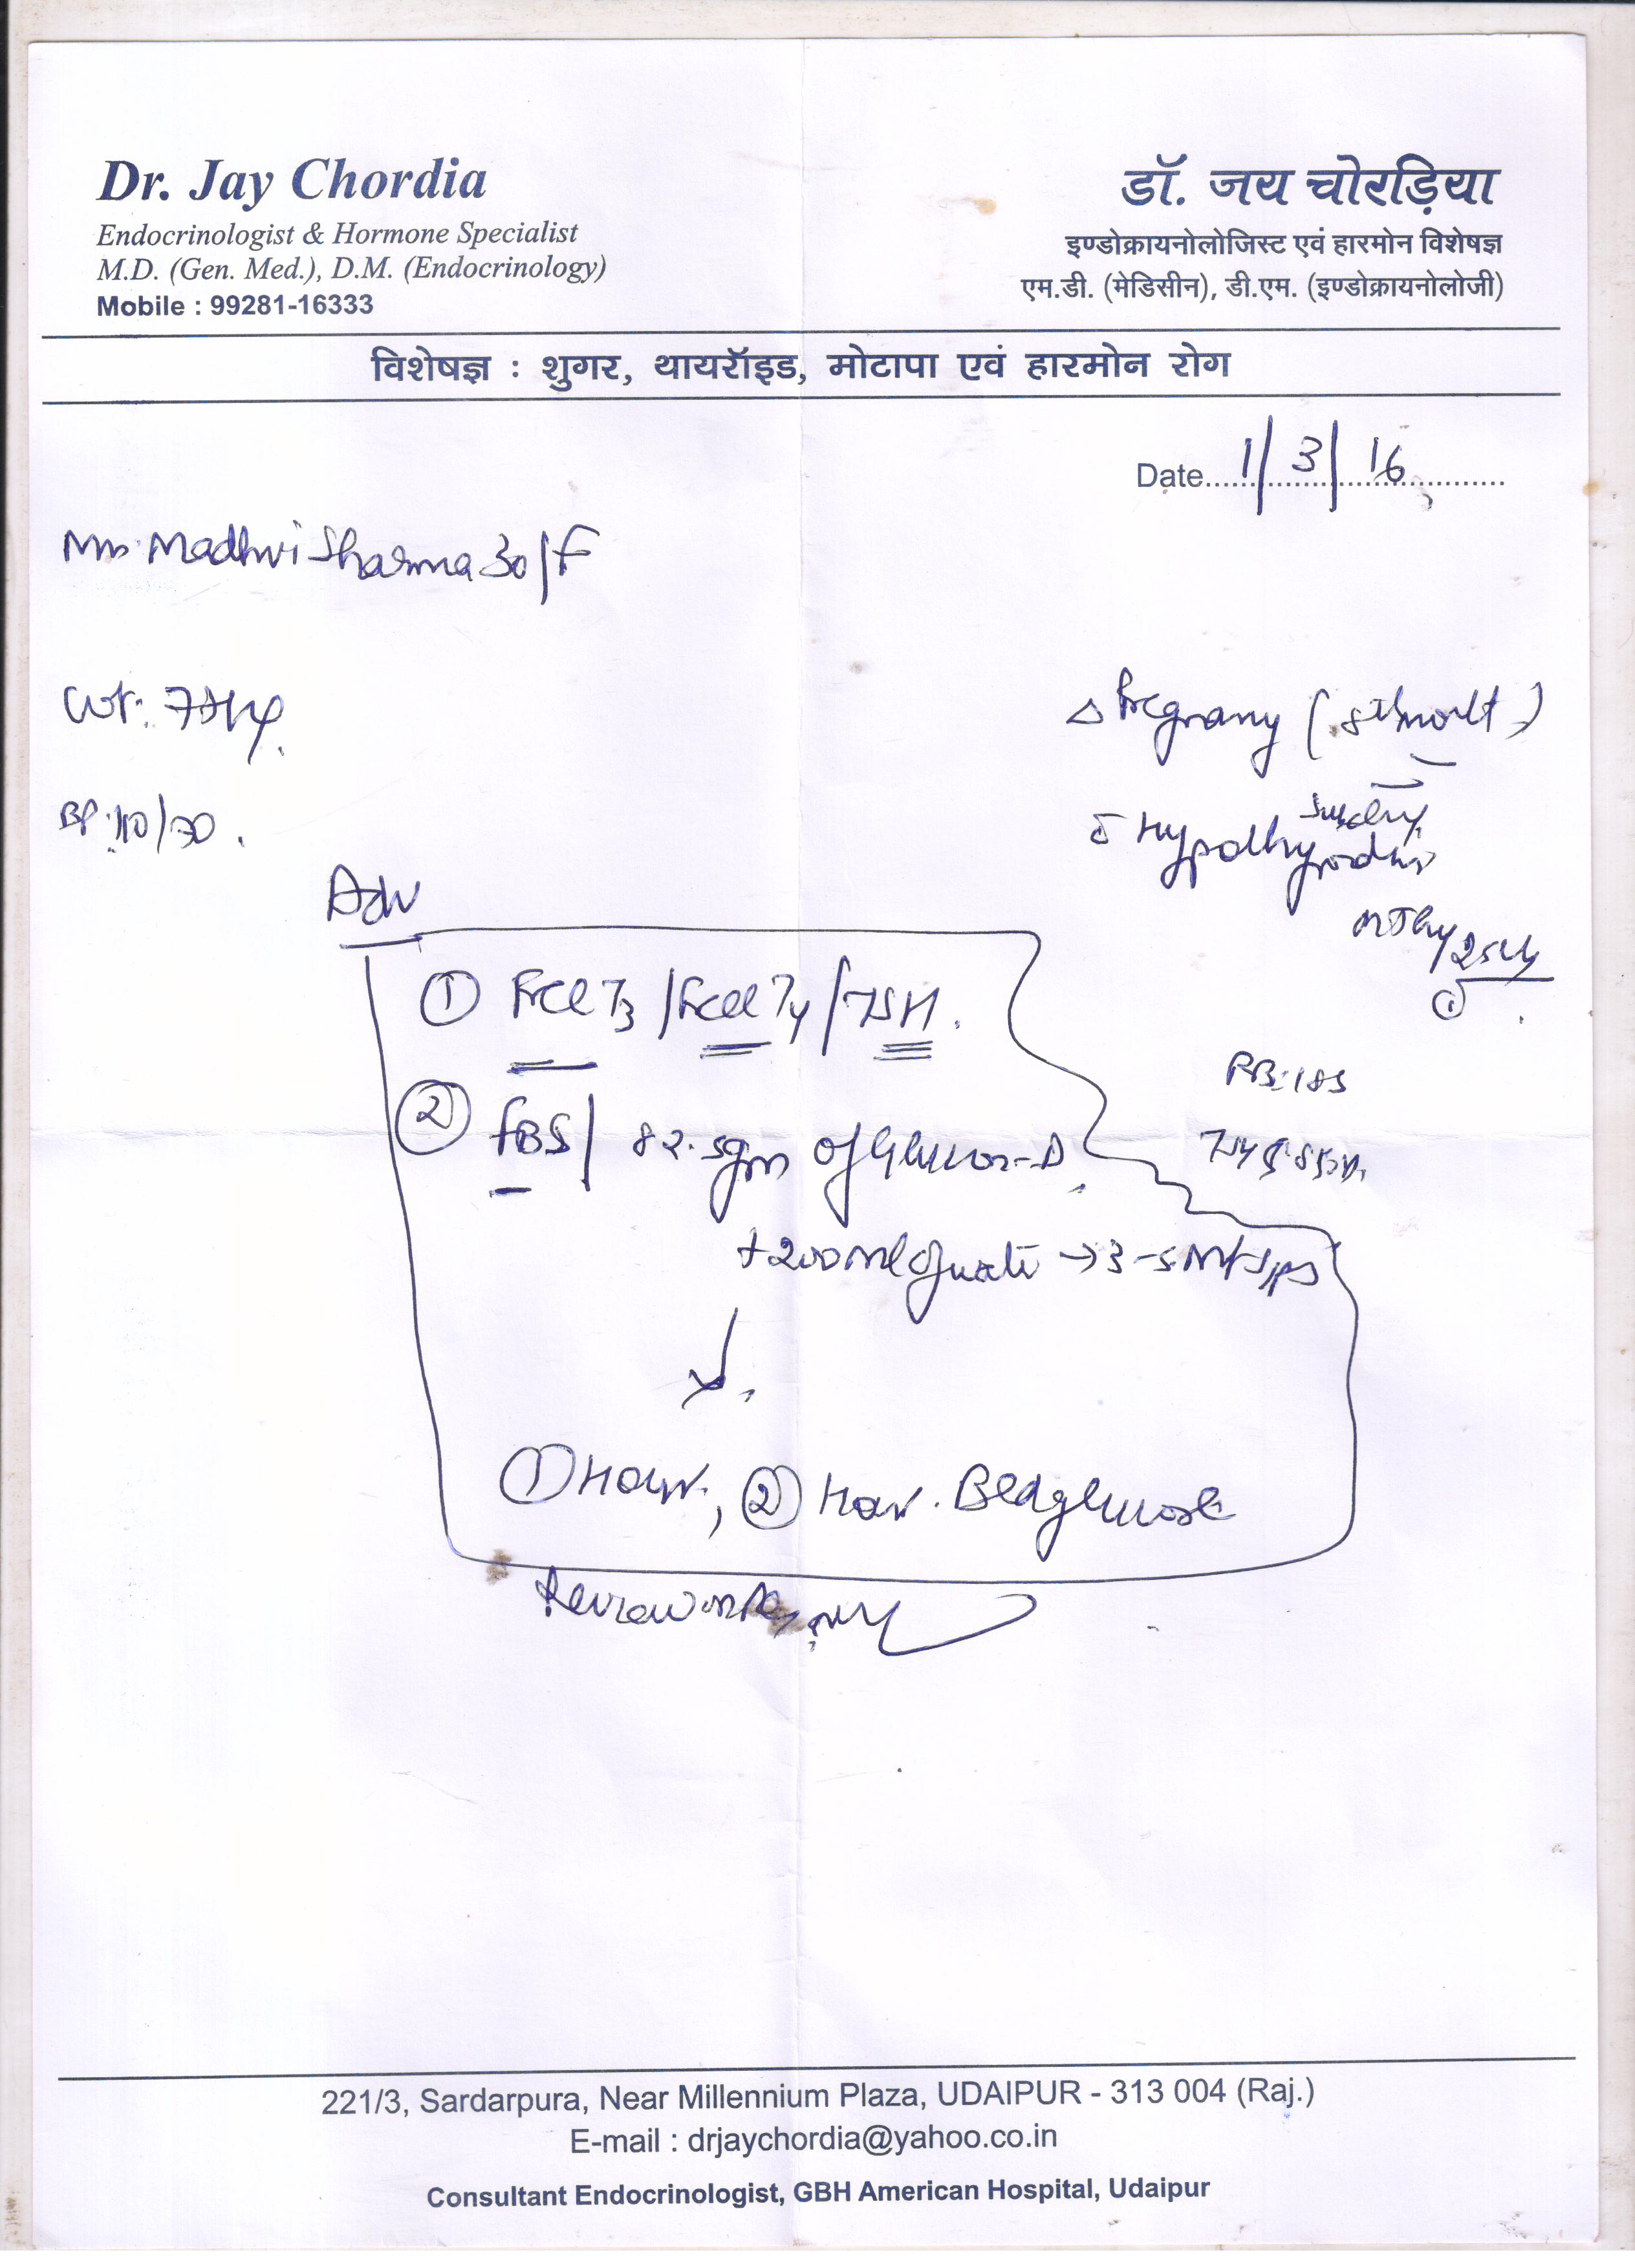 Dr. Jay Chordia
Endocrinologist & Hormone Specialist
M.D. (Gen. Med.), D.M. (Endocrinology)
Mobile : 99281-16333
डॉ. जय चोरड़िया
इण्डोक्रायनोलोजिस्ट एवं हारमोन विशेषज्ञ
एम.डी. (मेडिसीन), डी.एम. (इण्डोक्रायनोलोजी)
विशेषज्ञ : शुगर, थायरॉइड, मोटापा एवं हारमोन रोग
Date 1/3/16
Madhvi Sharma 30/F
Wt:
BP: 110/70.
Δ Pregnany (8th month)
Hypothyroidism
Adv
① Free T3/Free T4/TSH.
② FBS/ 82.5gm of Glucon-D
+200ml of water → 3-5
① Hour, ② Hour.
Review
221/3, Sardarpura, Near Millennium Plaza, UDAIPUR - 313 004 (Raj.)
E-mail : drjaychordia@yahoo.co.in
Consultant Endocrinologist, GBH American Hospital, Udaipur